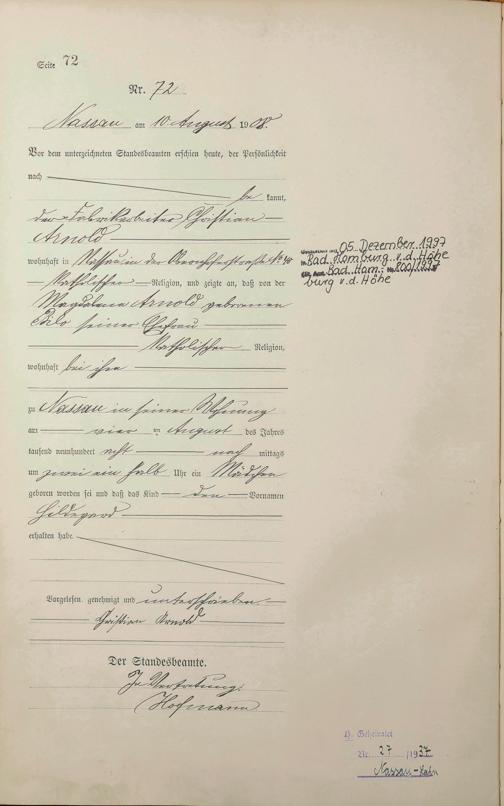 Seite 72
Nr. 72
Nassau am 10 August 1908.
Vor dem unterzeichneten Standesbeamten erschien heute, der Persönlichkeit
nach
be kannt,
der Fabrikarbeiter Christian
Arnold
wohnhaft in Nassau in der Obernhoferstraße No
Katholischer Religion, und zeigte an, daß von der
Magdalena Arnold geborenen
seiner Ehefrau
Katholischer Religion,
wohnhaft bei ihm
zu Nassau in seiner Wohnung
am vier August des Jahres
tausend neunhundert acht nach mittags
um zwei ein halb Uhr ein Mädchen
geboren worden sei und daß das Kind den Vornamen
Hildegard
erhalten habe.
Vorgelesen, genehmigt und unterschrieben.
Christian Arnold
Der Standesbeamte.
In Vertretung:
Hofmann
05. Dezember 1997
in Bad Homburg v.d. Höhe
Bad Hom-
burg v.d. Höhe
Geheiratet
Nr. 27/1937
Nassau-Lahn